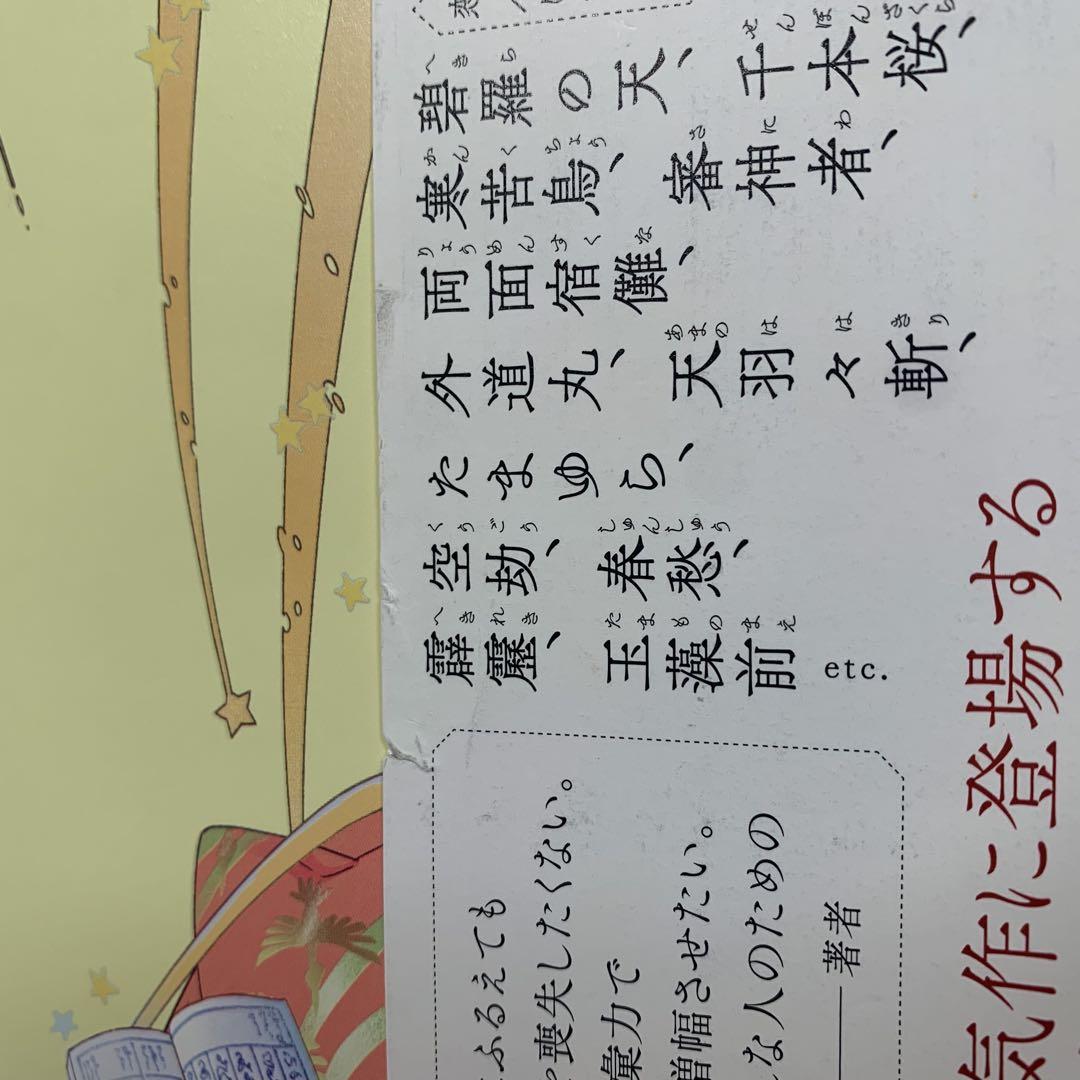 碧羅の天、
千本桜、
寒苦鳥、
審神者、
両面宿儺、
外道丸、
天羽々斬、
たまゆら、
空劫、
春愁、
霹靂、
玉藻前
etc.
ふるえても
喪失したくない。
彙力で
増幅させたい。
な人のための
――著者
気作に登場する